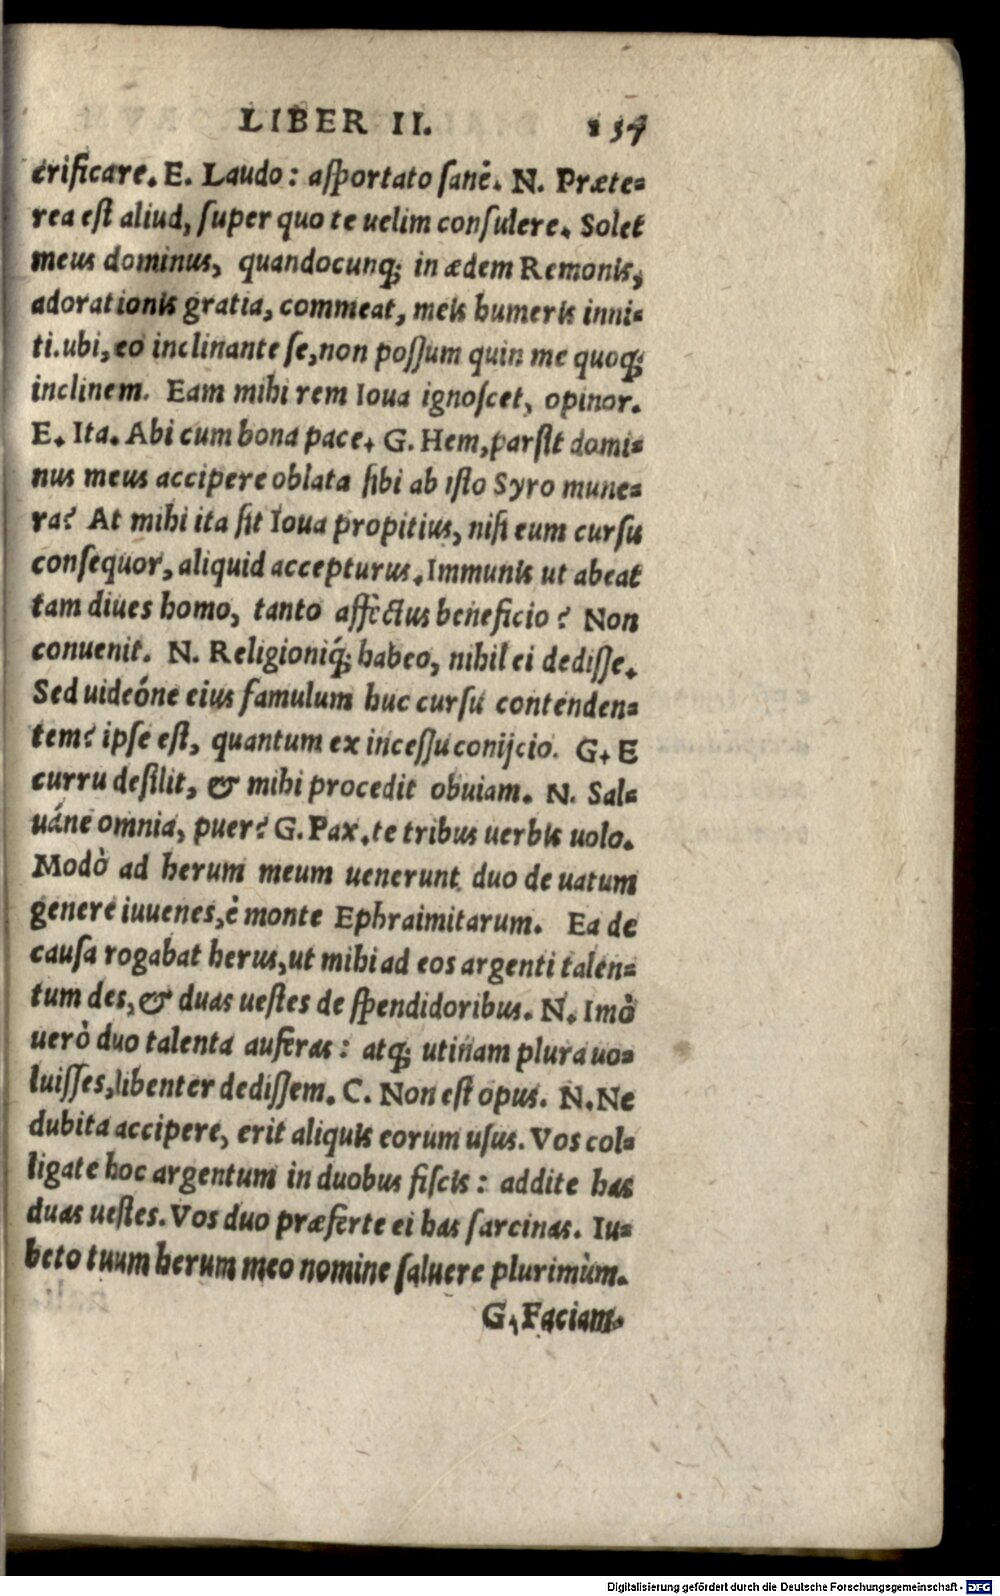 LIBER II. 157
crificare. E. Laudo: aſportato ſanè. N. Præte-
rea eſt aliud, ſuper quo te uelim conſulere. Solet
meus dominus, quandocunq; in ædem Remonis,
adorationis gratia, commeat, meis humeris inni-
ti. ubi, eo inclinante ſe, non poſſum quin me quoq;
inclinem. Eam mihi rem Ioua ignoſcet, opinor.
E. Ita. Abi cum bona pace. G. Hem, parſit domi-
nus meus accipere oblata ſibi ab iſto Syro mune-
ra? At mihi ita ſit Ioua propitius, niſi eum curſu
conſequor, aliquid accepturus. Immunis ut abeat
tam diues homo, tanto affectus beneficio? Non
conuenit. N. Religioniq́; habeo, nihil ei dediſſe.
Sed uideóne eius famulum huc curſu contenden-
tem? ipſe eſt, quantum ex inceſſu conijcio. G. E
curru deſilit, & mihi procedit obuiam. N. Sal-
uáne omnia, puer? G. Pax. te tribus uerbis uolo.
Modò ad herum meum uenerunt duo de uatum
genere iuuenes, è monte Ephraimitarum. Ea de
cauſa rogabat herus, ut mihi ad eos argenti talen-
tum des, & duas ueſtes de ſpendidoribus. N. Imò
uerò duo talenta auferas: atq; utinam plura uo-
luiſſes, libenter dediſſem. C. Non eſt opus. N. Ne
dubita accipere, erit aliquis eorum uſus. Vos col-
ligate hoc argentum in duobus fiſcis: addite has
duas ueſtes. Vos duo præferte ei has ſarcinas. Iu-
beto tuum herum meo nomine ſaluere plurimùm.
G. Faciam.
Digitalisierung gefördert durch die Deutsche Forschungsgemeinschaft - DFG